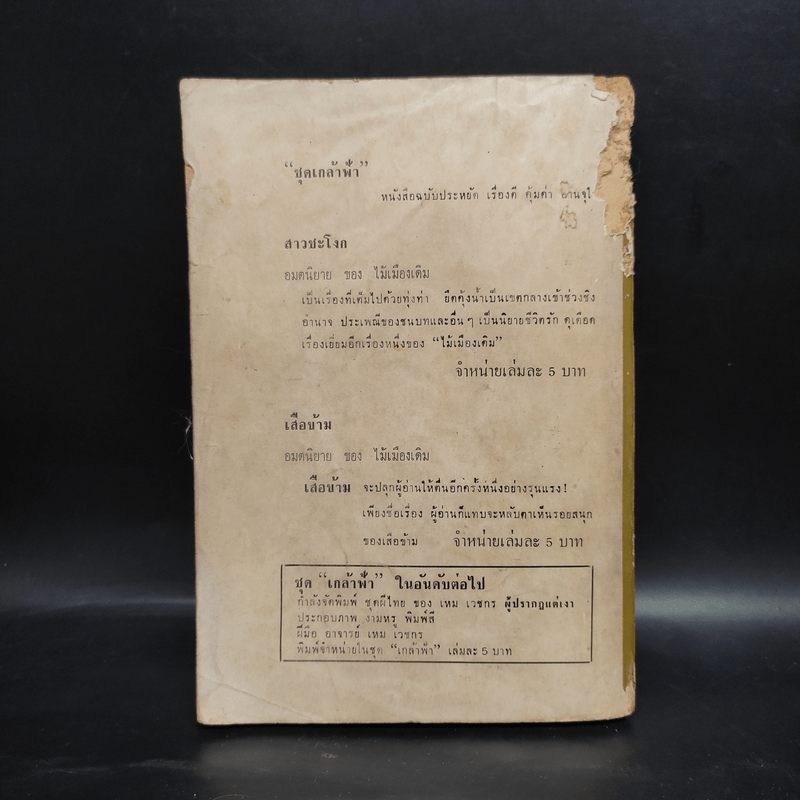 “ชุดเกล้าฟ้า”
หนังสือฉบับประหยัด เรื่องดี คุ้มค่า อ่านจุใ
สาวชะโงก
อมตนิยาย ของ ไม้เมืองเดิม
เป็นเรื่องที่เต็มไปด้วยทุ่งท่า ยึดคุ้งน้ำเป็นเขตกลางเข้าช่วงชิง
อำนาจ ประเพณีของชนบทและอื่นๆ เป็นนิยายชีวิตรัก ดุเดือด
เรื่องเยี่ยมอีกเรื่องหนึ่งของ “ไม้เมืองเดิม”
จำหน่ายเล่มละ 5 บาท
เสือข้าม
อมตนิยาย ของ ไม้เมืองเดิม
เสือข้าม จะปลุกผู้อ่านให้ตื่นอีกครั้งหนึ่งอย่างรุนแรง!
เพียงชื่อเรื่อง ผู้อ่านก็แทบจะหลับตาเห็นรอยสนุก
ของเสือข้าม จำหน่ายเล่มละ 5 บาท
ชุด “เกล้าฟ้า” ในอันดับต่อไป
กำลังจัดพิมพ์ ชุดผีไทย ของ เหม เวชกร ผู้ปรากฏแต่เงา
ประกอบภาพ งามหรู พิมพ์สี
ฝีมือ อาจารย์ เหม เวชกร
พิมพ์จำหน่ายในชุด “เกล้าฟ้า” เล่มละ 5 บาท